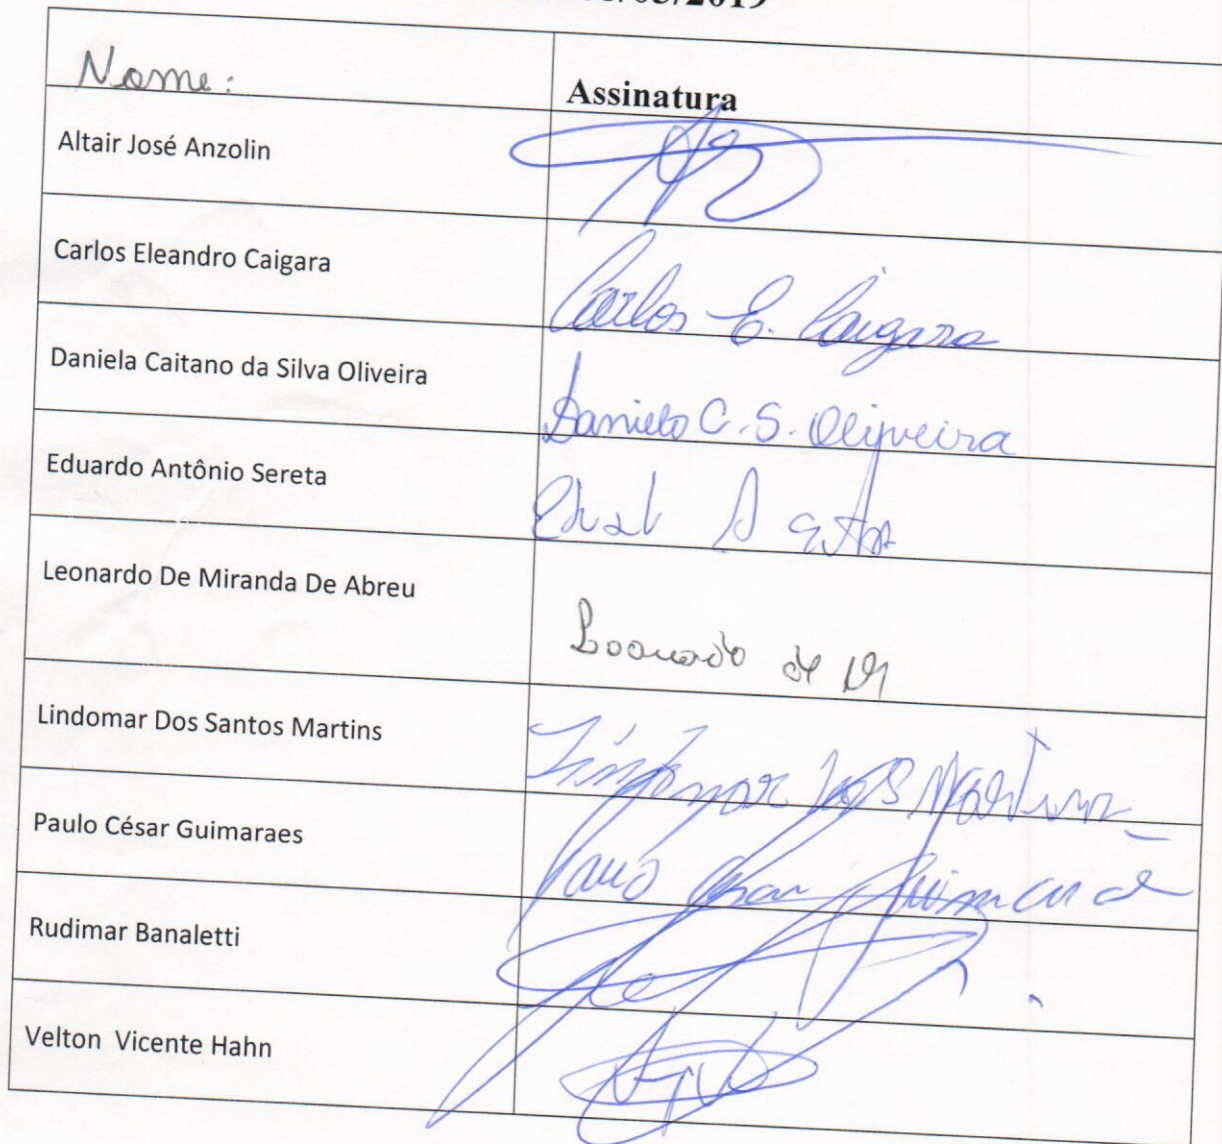 /03/2019
Nome:
Assinatura
Altair José Anzolin
Carlos Eleandro Caigara
Carlos E. Caigara
Daniela Caitano da Silva Oliveira
Daniela C. S. Oliveira
Eduardo Antônio Sereta
Leonardo De Miranda De Abreu
Leonardo de M
Lindomar Dos Santos Martins
Lindomar dos S Martins
Paulo César Guimaraes
Paulo Cesar Guimarães
Rudimar Banaletti
Velton Vicente Hahn